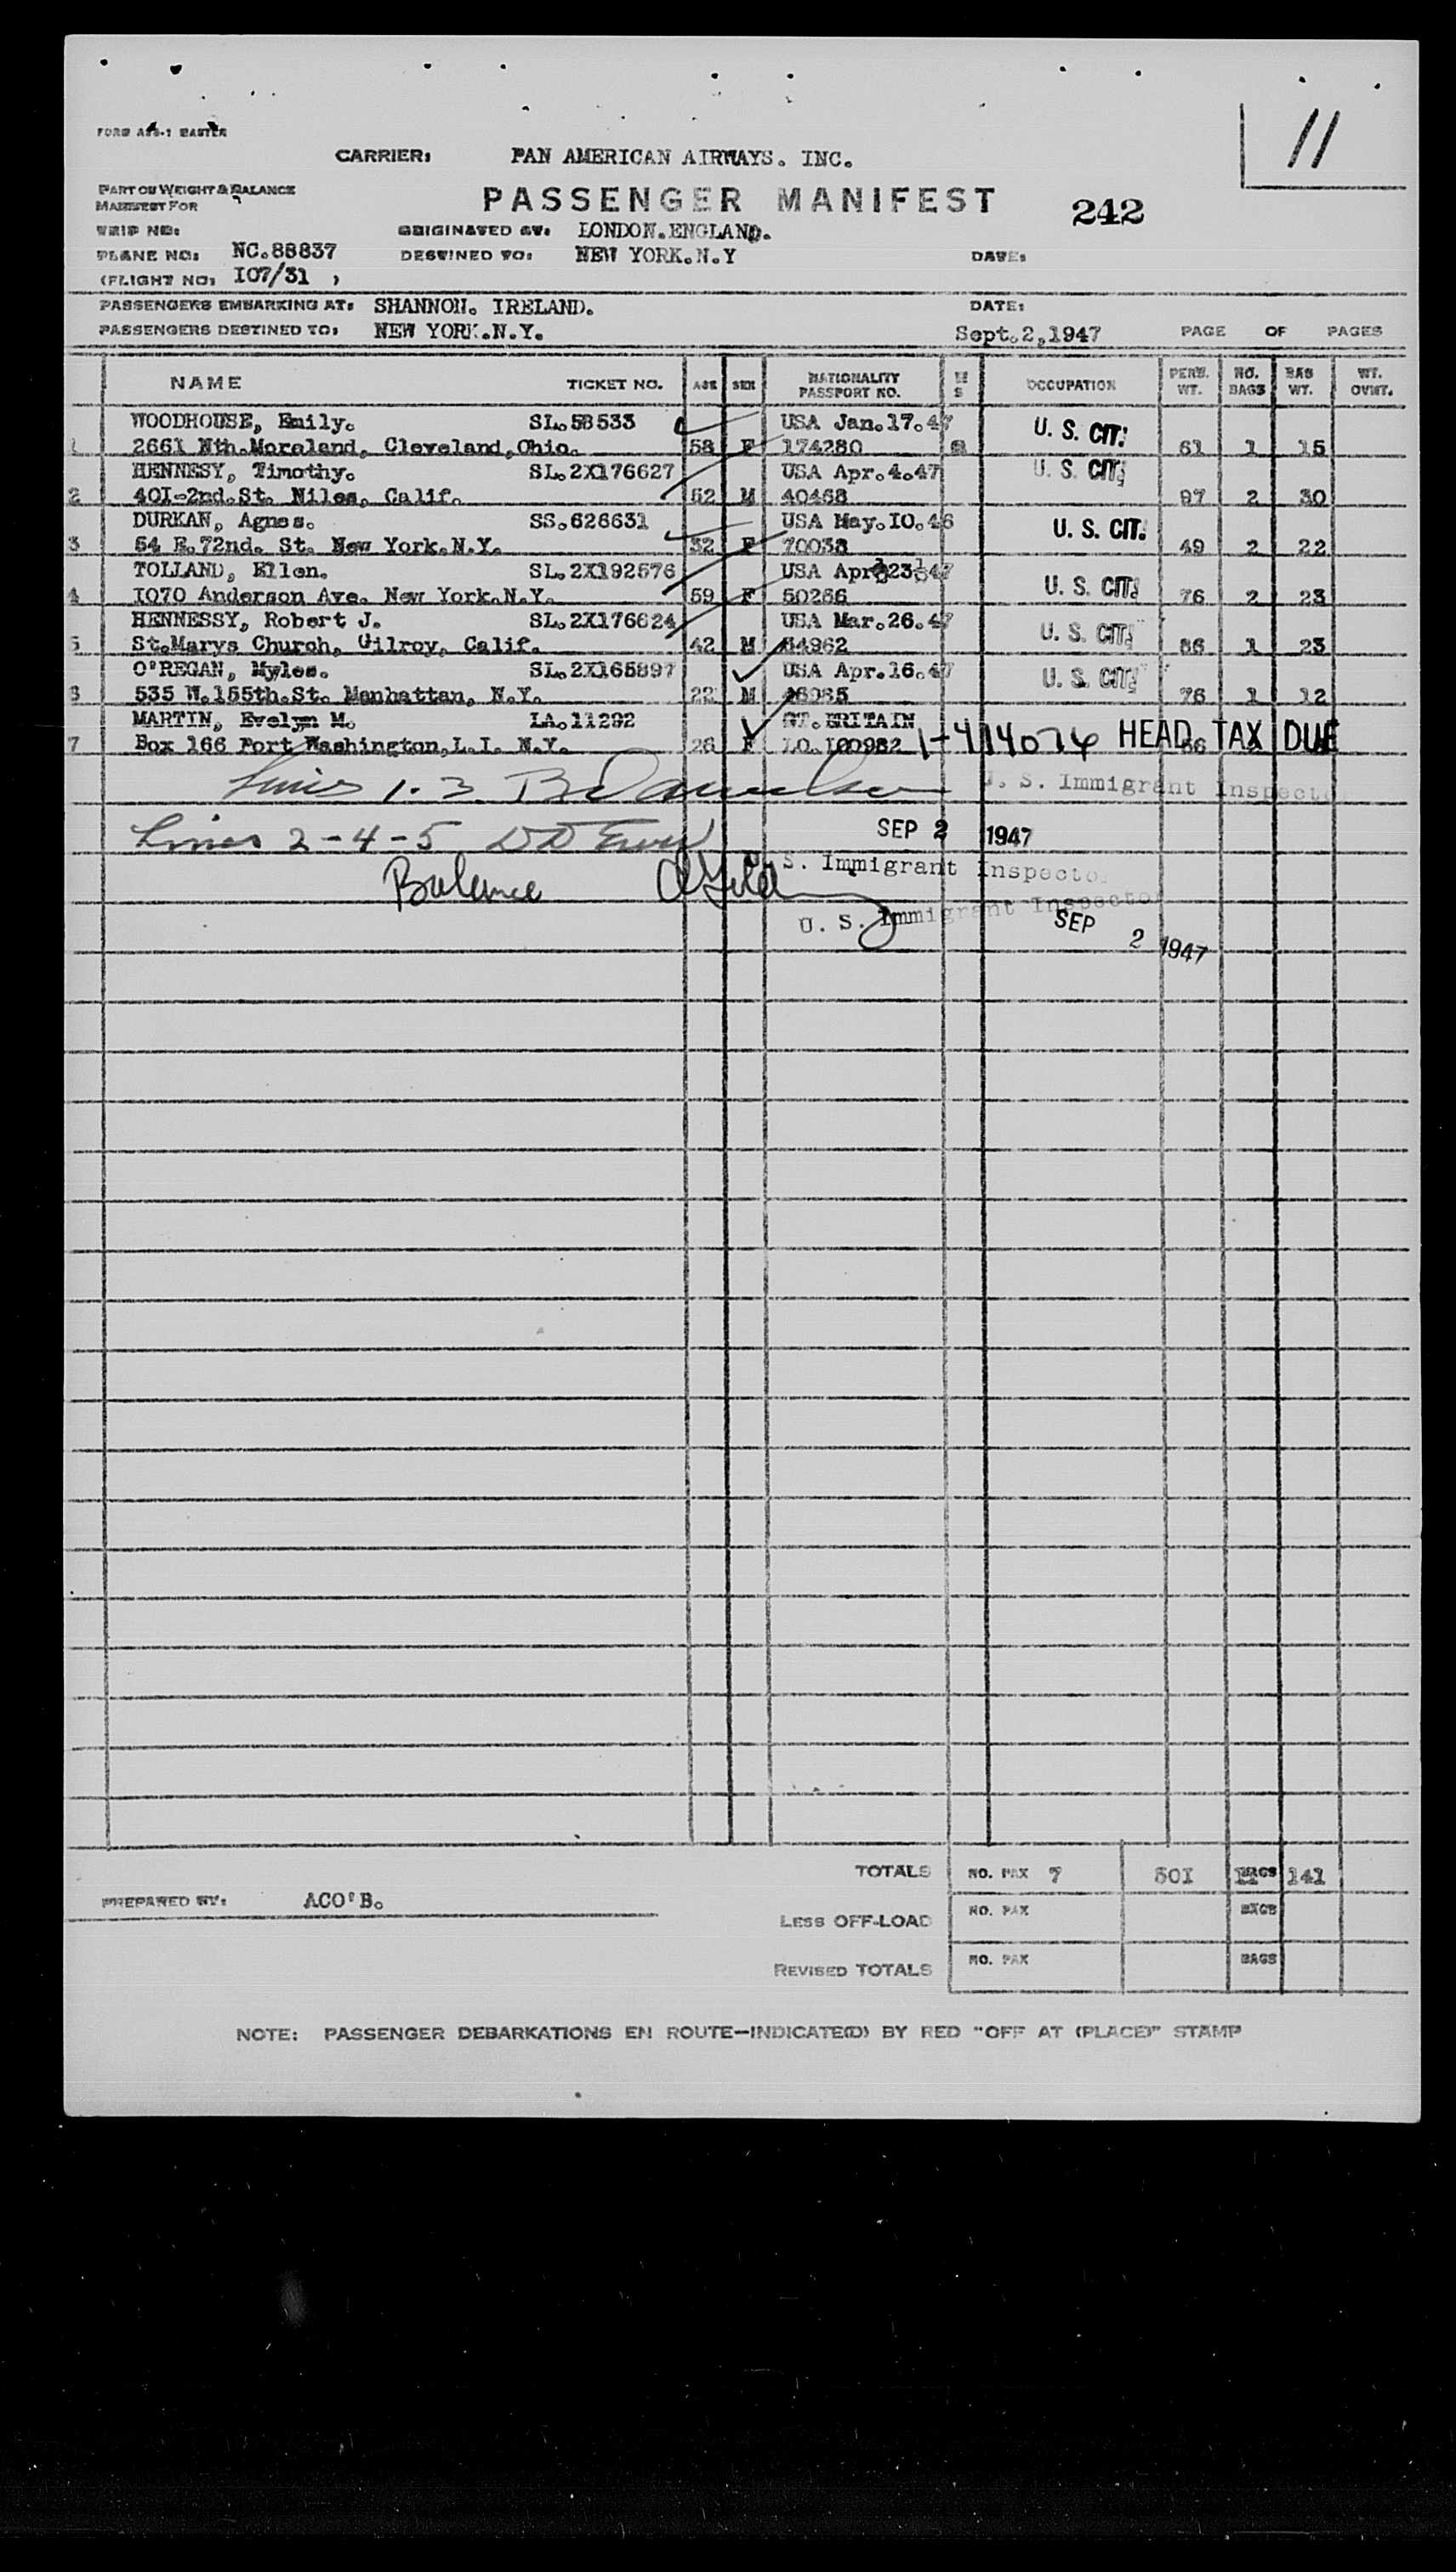 FORM ASS-1 MASTER
11
CARRIER: PAN AMERICAN AIRWAYS. INC.
PART OU WEIGHT & BALANCE
MANIFEST FOR
PASSENGER MANIFEST 242
TRIP NO:
ORIGINATED AT: LONDON.ENGLAND.
PLANE NO: NC.88837
DESTINED TO: NEW YORK.N.Y
DATE:
(FLIGHT NO: I07/31 )
PASSENGERS EMBARKING AT: SHANNON. IRELAND. DATE:
PASSENGERS DESTINED TO: NEW YORK.N.Y. Sept.2,1947 PAGE OF PAGES
NAME TICKET NO. AGE SEX NATIONALITY PASSPORT NO. M S OCCUPATION PERS. WT. NO. BAGS BAG WT. WT. OVWT.
WOODHOUSE, Emily. SL.58533 USA Jan.17.47 U. S. CIT.
1 2661 Nth.Moreland, Cleveland,Ohio. 58 F 174280 61 1 15
HENNESY, Timothy. SL.2X176627 USA Apr.4.47 U. S. CIT.
2 40I-2nd.St. Niles, Calif. 52 M 40458 97 2 30
DURKAN, Agnes. SS.626631 USA May.IO.46 U. S. CIT.
3 54 E.72nd. St. New York.N.Y. 32 F 70038 49 2 22
TOLLAND, Ellen. SL.2X192576 USA Apr.23.47 U. S. CIT.
4 I070 Anderson Ave. New York.N.Y. 59 F 50266 76 2 23
HENNESSY, Robert J. SL.2X176624 USA Mar.26.47 U. S. CIT.
5 St.Marys Church, Gilroy, Calif. 42 M 34962 86 1 23
O'REGAN, Myles. SL.2X165897 USA Apr.16.47 U. S. CIT.
6 535 W.155th.St. Manhattan, N.Y. 22 M 76 1 12
MARTIN, Evelyn M. LA.11292 GT.BRITAIN
7 Box 166 Port Washington,L.I. N.Y. 26 F LO.I00982 1-414074 HEAD TAX DUE
Lines 1.3 U. S. Immigrant Inspector
Lines 2-4-5 SEP 2 1947
Balance U. S. Immigrant Inspector
U. S. Immigrant Inspector
SEP 2 1947
TOTALS NO. PAX 7 50I BAGS 141
PREPARED BY: ACO'B.
LESS OFF-LOAD NO. PAX BAGS
REVISED TOTALS NO. PAX BAGS
NOTE: PASSENGER DEBARKATIONS EN ROUTE—INDICATE(D) BY RED "OFF AT (PLACE)" STAMP